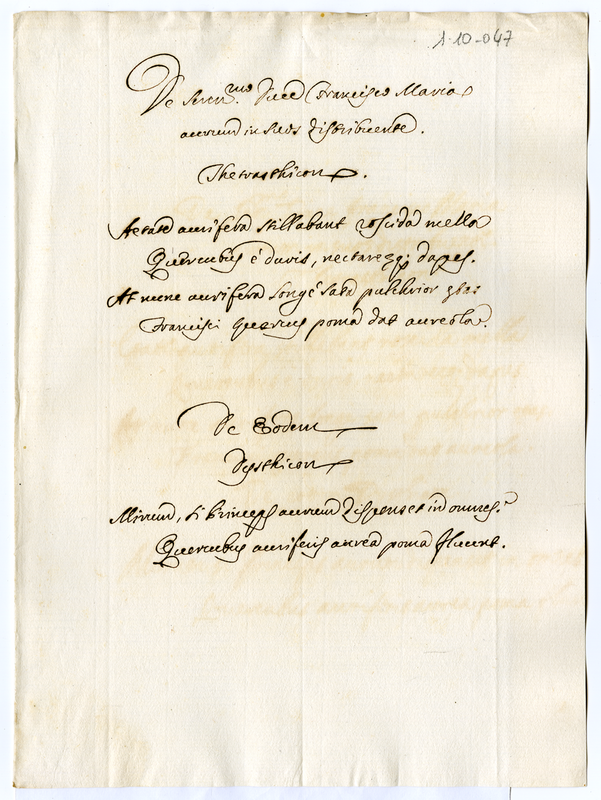 1-10-047
De Seren.mo Duce Francisco Maria
aureum in suos distribuente.
Thetrasthicon.
Aetate aurifera stillabant roscida mella
Quercubus è duris, nectareaeq; dapes.
At nunc aurifera longè sata pulchrior
Francisci Quercus poma dat aureola.
De Eodem
Dysthicon
Mirum, si Princeps aureum dispenset in omnes?
Quercubus auriferis aurea poma fluunt.